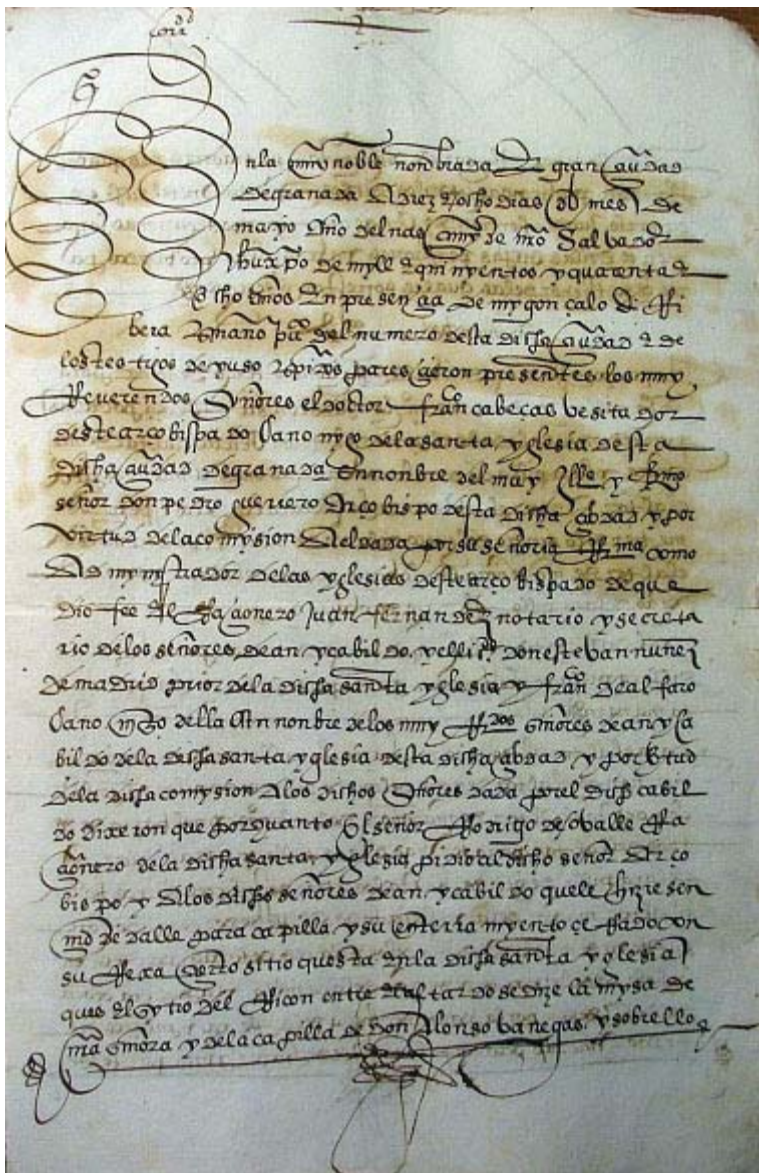 corr.d
En la muy noble nonbrada e gran çiudad
de granada a diez e ocho dias del mes de
mayo año del nasçimy.o de n̄ro Salvador
Jhuxpo de myll e quinyentos y quarenta e
ocho años en presençia de my gonçalo de Ri
bera escrivano pu.co del numero desta dicha çiudad e de
los testigos de yuso escriptos paresçieron presentes los muy
Reverendos Señores el dotor fran.co cabeças vesitador
deste arçobispado canonygo de la santa yglesia desta
dicha çiudad de granada En nonbre del muy Ill.e y R.mo
señor don pedro guerrero arçobispo desta dicha çibdad y por
virtud de la comysion a el dada por su señoria R.ma como
admynystrador de las yglesias deste arçobispado de que
dio fee el Raçionero Juan fernandez notario y secreta
rio de los señores dean y cabildo y el li.do don estevan nuñez
de madrid prior de la dicha santa yglesia y fran.co de alfaro
canonigo della En nonbre de los muy R.dos señores dean y ca
bildo de la dicha santa yglesia desta dicha çibdad y por virtud
de la dicha comysion a los dichos Señores dada por el dicho cabil
do dixeron que por quanto el señor Rodrigo de ovalle Ra
çionero de la dicha santa yglesia pidio al dicho señor arço
bispo y a los dichos señores dean y cabildo que le hiziesen
m̄d de dalle para capilla y su enterramyento çerrado con
su Rexa çierto sitio questa en la dicha santa yglesia
ques el sytio del Ricon entre el altar do se dize la mysa de
n̄ra señora y de la capilla de don Alonso vanegas y sobrello